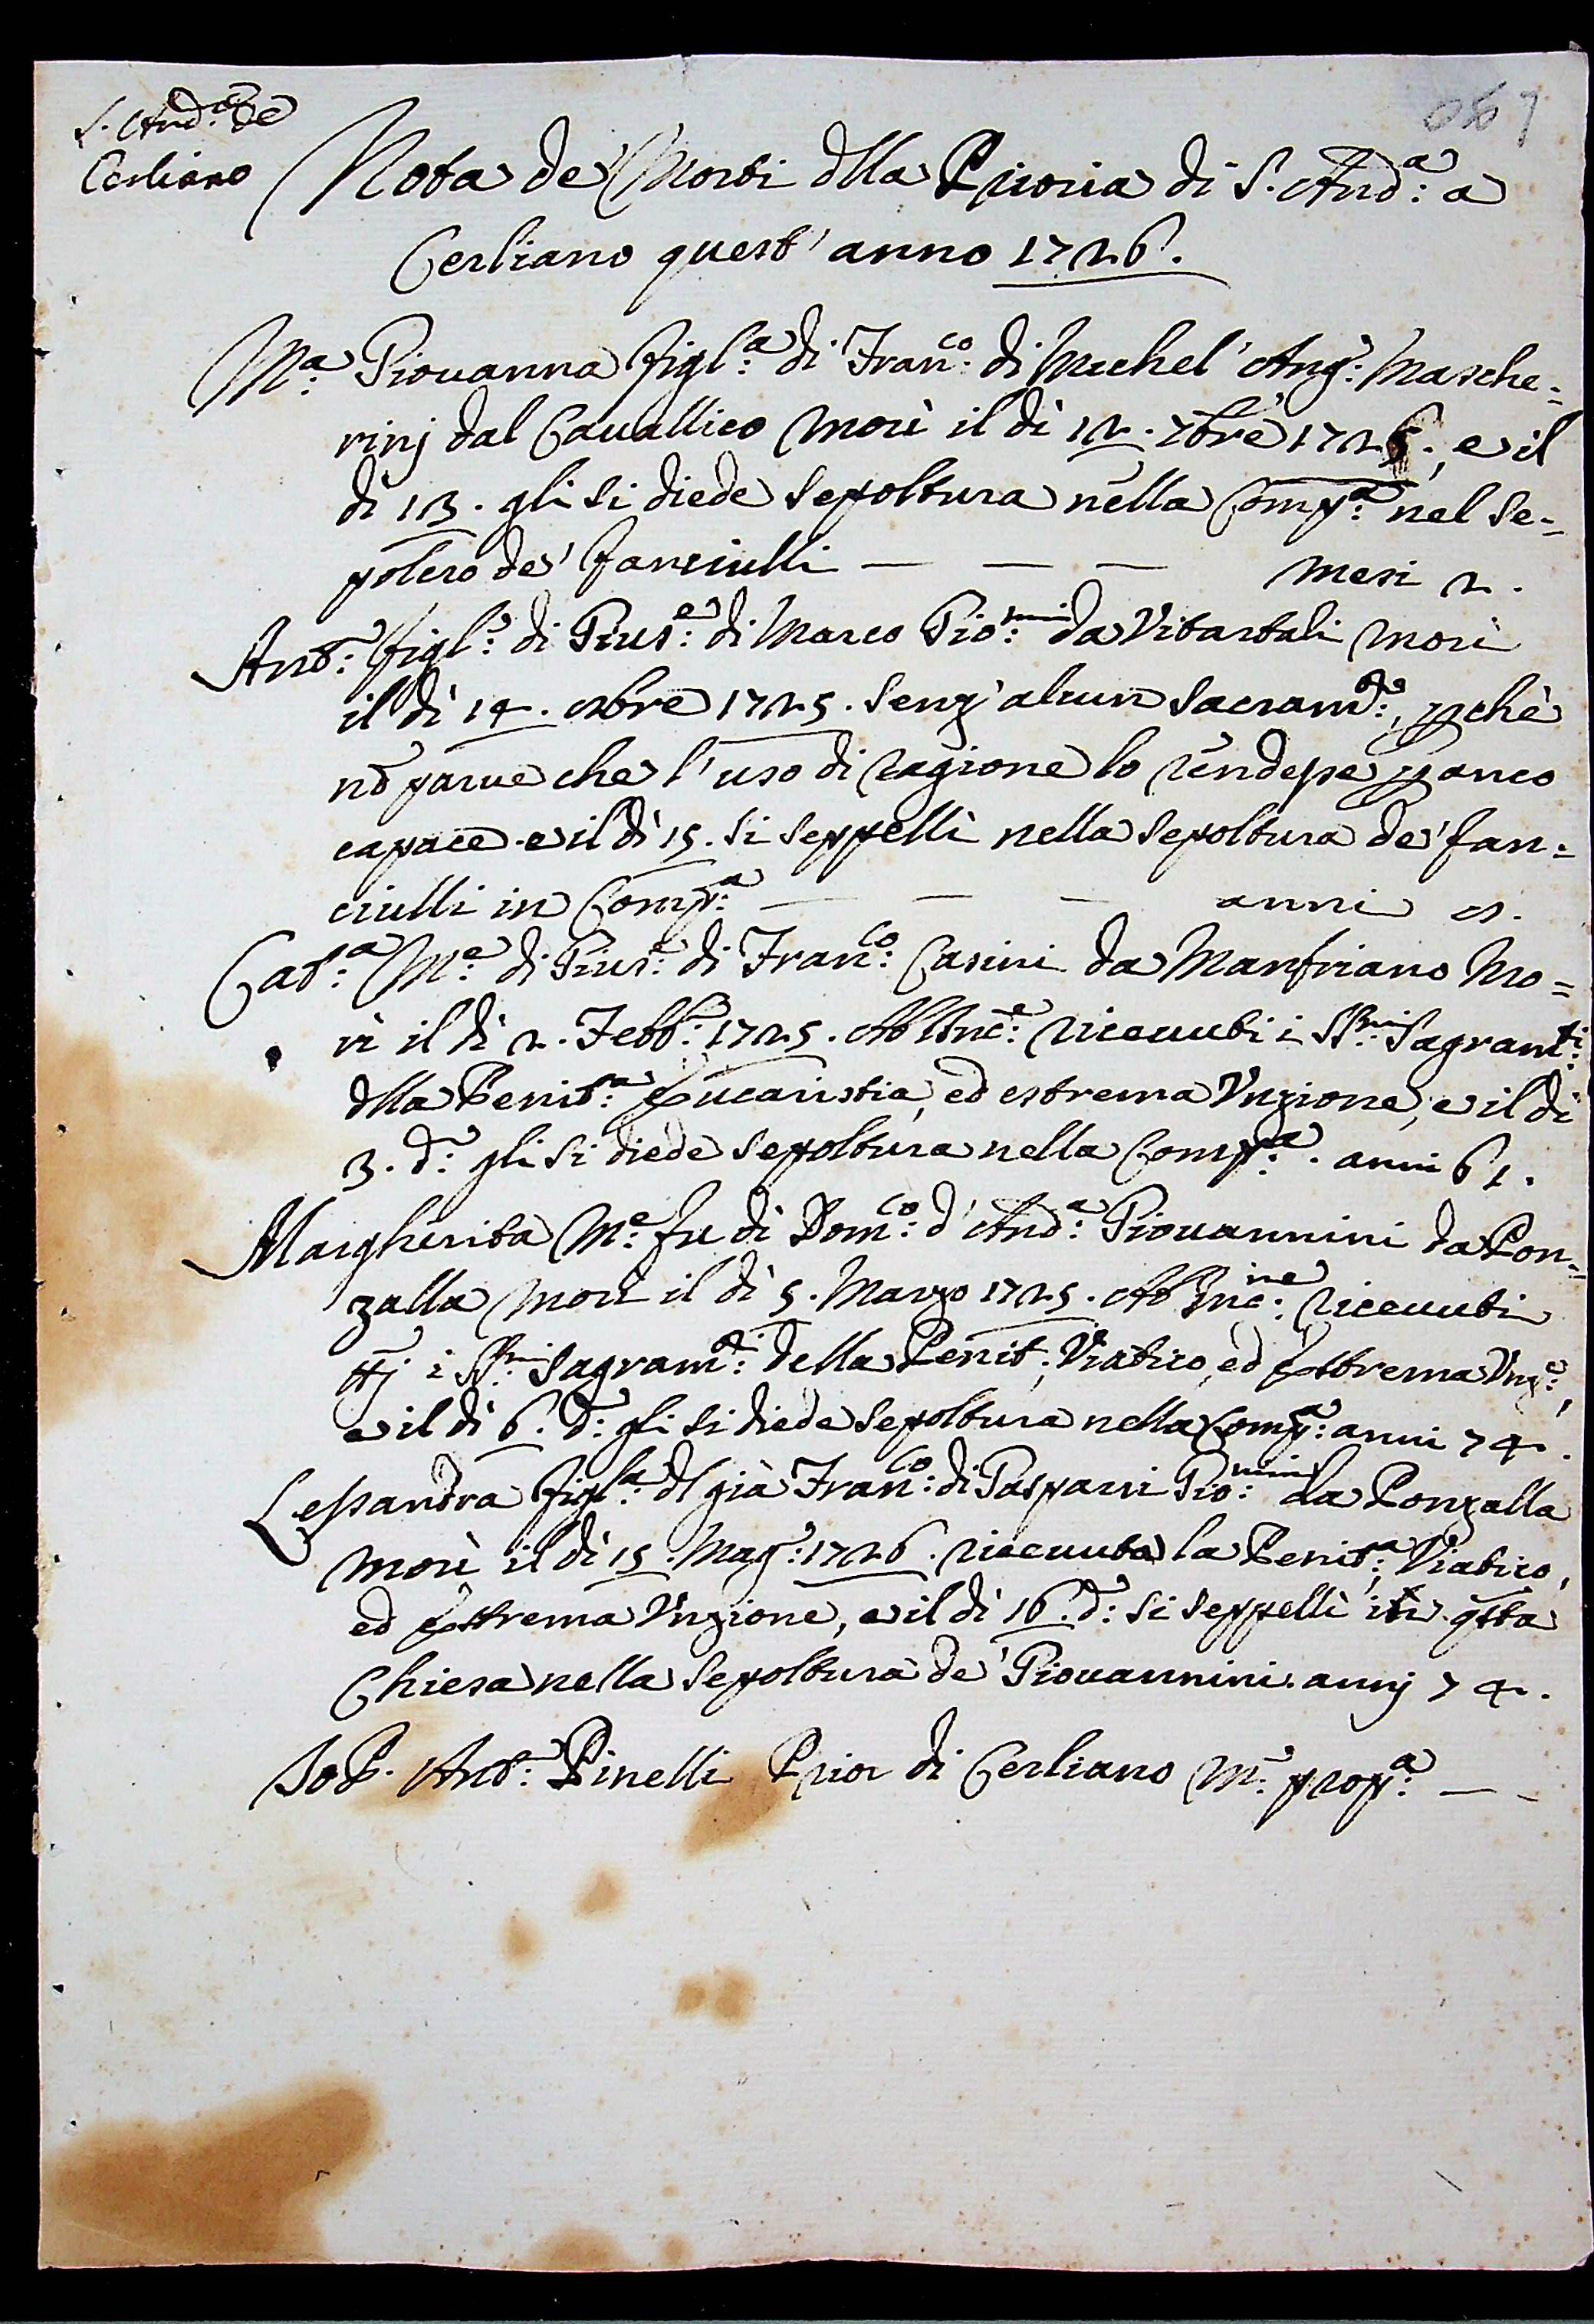 S. And.ª de
Cerliano
Nota de' Morti dlla Prioria di S. And:ª a
Cerliano quest' anno 1726.
M:ª Giovanna figl:ª di Fran:co di Michel' Ang: Masche=
rinj dal Cavallico morì il dì 12. 7bre 1725., e il
dì 13. gli si diede sepoltura nella Comp:ª nel se=
polcro de' fanciulli — — — mesi 2.
Ant:º figl:º di Gius:e di Marco Gio:nnini da Vitartali morì
il dì 14. 8bre 1725. senz' alcun sacram:to, pchè
nō parve che l'uso di ragione lo rendesse p anco
capace e il dì 15. si seppellì nella sepoltura de' fan=
ciulli in Comp:ª — — — anni 8.
Cat:ª M:e di Gius:e di Fran:co Casini da Manfriano mo=
rì il dì 2. Febb:º 1725. Ab Inc:e ricevuti i SS:mi Sagram:ti
dlla Penit:ª Eucaristia, ed estrema Unzione, e il dì
3. d:º gli si diede sepoltura nella Comp:ª. anni 61.
Margherita M:e fu di Dom:co d' And:ª Giovannini da Ron=
zalla morì il dì 5. Marzo 1725. Ab Inc:ne ricevuti
ttj i SS:mi Sagram:ti della Penit:, Viatico, ed Estrema Unz:e,
e il dì 6. d:º gli si diede sepoltura nella Comp:ª anni 74.
Lessandra figl:ª dl già Fran:co di Gasparri Gio:nnini da Ronzalla
morì il dì 15. Mag:º 1726. ricevuta la Penit:ª, Viatico,
ed Estrema Unzione, e il dì 16. d:º si seppellì in qsta
Chiesa nella sepoltura de' Giovannini. annj 74.
Io P. Ant:º Pinelli Prior di Cerliano m:º prop:ª —